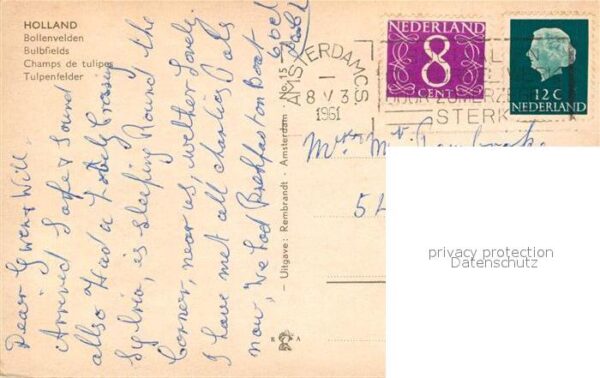 HOLLAND
Bollenvelden
Bulbfields
Champs de tulipes
Tulpenfelder
Dear Gwen & Will.
Arrived Safe & Sound
allso Had a Lovely Crossing
Sylvia, is sleeping Round the
Corner, near us, wether Lovely.
I have met all Charlies Pals
now, We Had Breakfast on Boat
- Uitgave: Rembrandt - Amsterdam - No. 15 -
R A
AMSTERDAM C.S
- I -
8 V 3
1961
ZOMERZE
STERK
NEDERLAND
8
CENT
12 C
NEDERLAND
Mr
54
privacy protection
Datenschutz